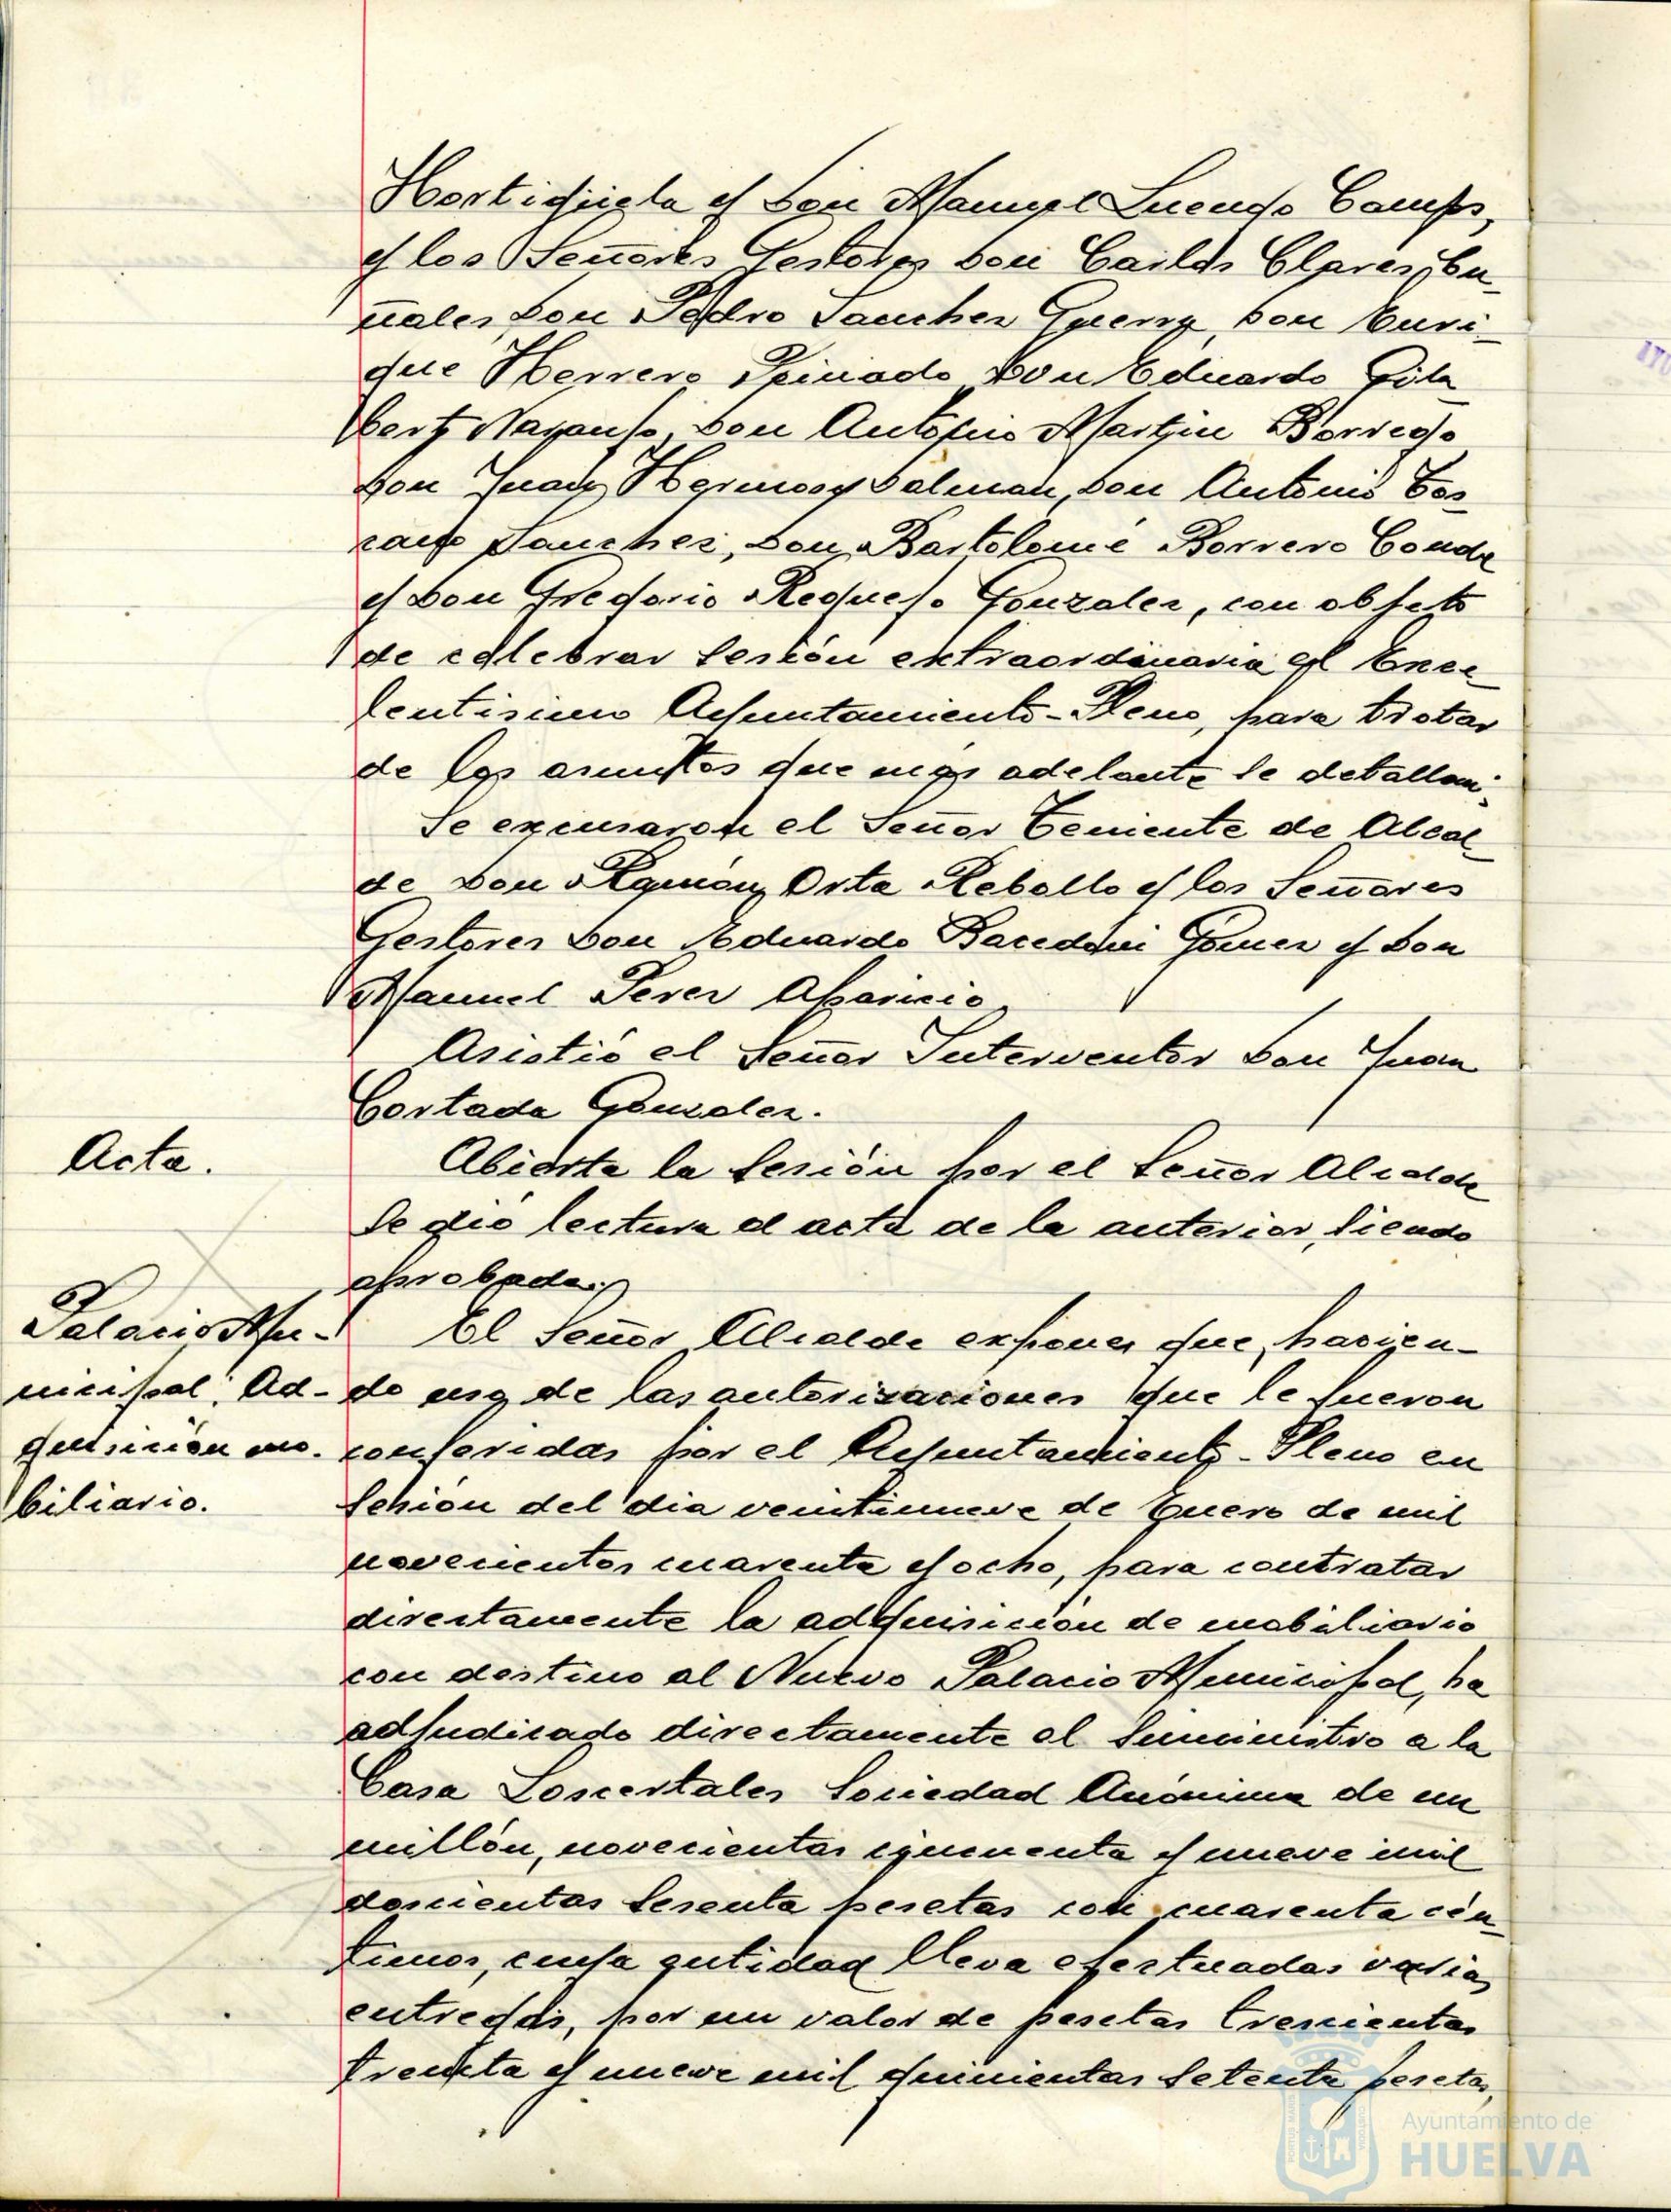 Hortigüela y Don Manuel Luengo Camps,
y los Señores Gestores Don Carlos Clares Bu-
ñales, Don Pedro Sanchez Guerra, Don Enri-
que Herrero Peinado, Don Eduardo Gila
bert Naranjo, Don Antonio Martin Borrego
Don Juan Hermosa Dalmau, Don Antonio To-
Sanchez, Don Bartolomé Borrero Conde
y Don Gregorio Requejo Gonzalez, con objeto
de celebrar sesión extraordinaria el Exce-
lentisimo Ayuntamiento-Pleno, para tratar
de los asuntos que más adelante se detallan.
Se excusaron el Señor Teniente de Alcal-
de Don Ramón Orta Rebollo y los Señores
Gestores Don Eduardo Gomez y Don
Manuel Perez Aparicio.
Asistió el Señor Interventor Don Juan
Cortada Gonzalez.
Acta.
Abierta la sesión por el Señor Alcalde
se dió lectura al acta de la anterior, siendo
aprobada.
Palacio Mu-
nicipal. Ad-
quisición mo-
biliario.
El Señor Alcalde expone que, hacien-
do uso de las autorizaciones que le fueron
conferidas por el Ayuntamiento-Pleno en
sesión del dia veintinueve de Enero de mil
novecientos cuarenta y ocho, para contratar
directamente la adquisición de mobiliario
con destino al Nuevo Palacio Municipal, ha
adjudicado directamente el suministro a la
Casa Loscertales Sociedad Anónima de un
millón, novecientas cincuenta y nueve mil
doscientas sesenta pesetas con cuarenta cén-
timos, cuya entidad lleva efectuadas varias
entregas, por un valor de pesetas trescientas
treinta y nueve mil quinientas setenta pesetas,
Ayuntamiento de
HUELVA